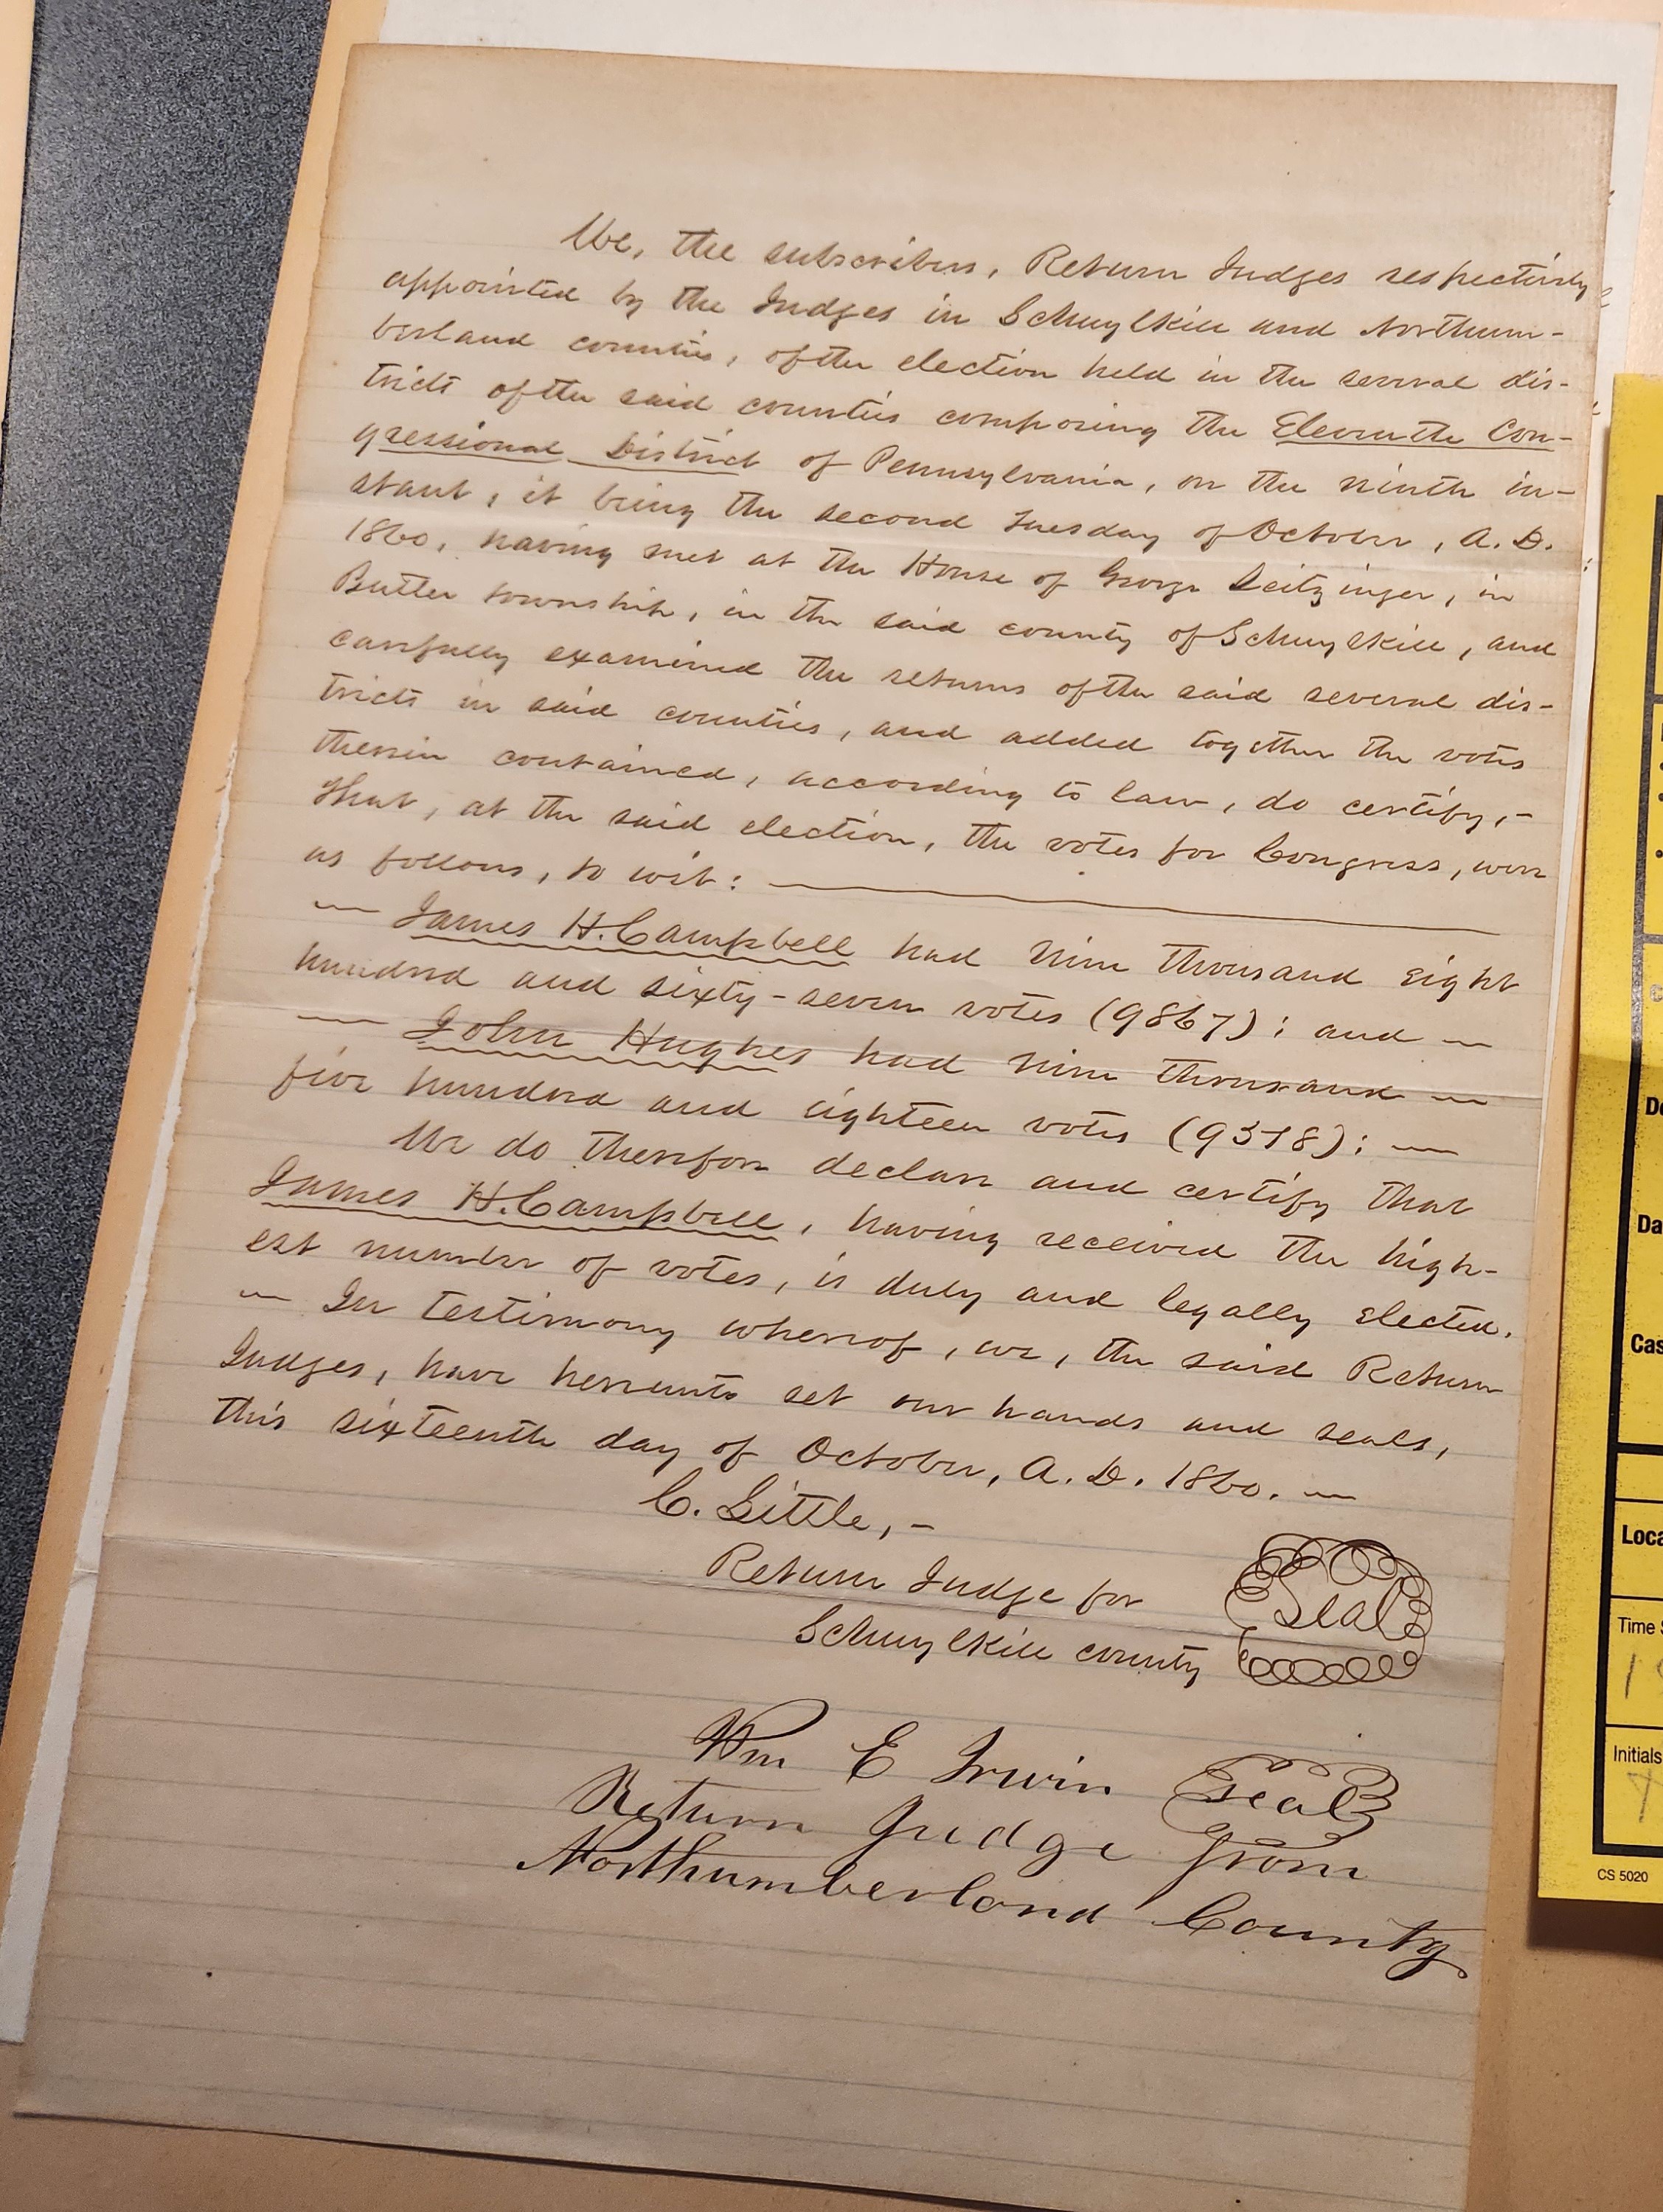 We, the subscribers, Return Judges respectively
appointed by the Judges in Schuylkill and Northum-
berland counties, of the election held in the several dis-
tricts of the said counties composing the Eleventh Con-
gressional District of Pennsylvania, on the ninth in-
stant, it being the second Tuesday of October, A. D.
1860, having met at the House of George Seitzinger, in
Butler township, in the said county of Schuylkill, and
carefully examined the returns of the said several dis-
tricts in said counties, and added together the votes
therein contained, according to law, do certify,-
That, at the said election, the votes for Congress, were
as follows, to wit: —
— James H. Campbell had Nine thousand eight
hundred and sixty-seven votes (9867); and —
— John Hughes had Nine thousand —
five hundred and eighteen votes (9518); —
We do therefore declare and certify that
James H. Campbell, having received the high-
est number of votes, is duly and legally elected.
— In testimony whereof, we, the said Return
Judges, have hereunto set our hands and seals,
this sixteenth day of October, A. D. 1860. —
C. Little, -
Return Judge for
Schuylkill county
Seal
Wm E Irwin Seal
Return Judge from
Northumberland County
De
Da
Cas
Loca
Time S
Initials
CS 5020